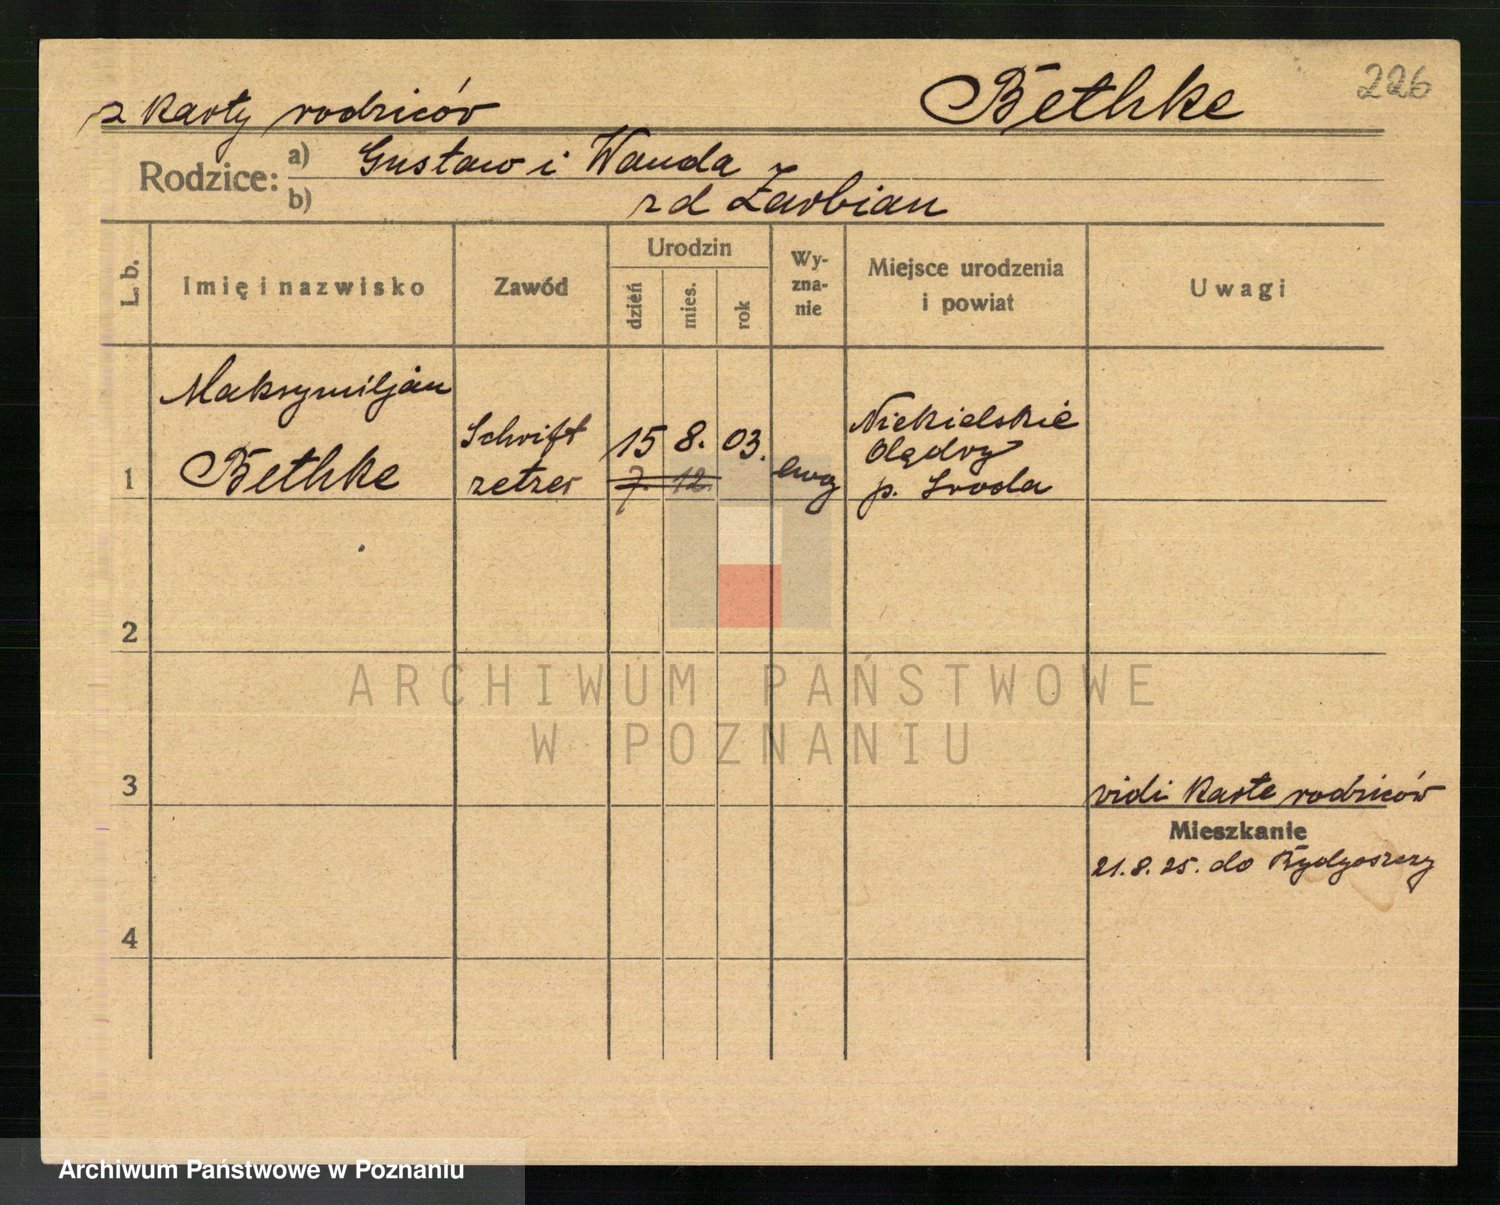 Bethke 226
z karty rodziców
Rodzice: a) Gustaw i Wanda
b) zd Zarbian
L. b. Imię i nazwisko Zawód Urodzin dzień mies. rok Wyznanie Miejsce urodzenia i powiat Uwagi
Maksymiljan
Bethke
Schrift
zetzer
15 8. 03.
7. 12.
ewg
Niekielskie
Olędry
p. Sroda
1
2
3
4
vidi Karte rodziców
Mieszkanie
21.8.25. do Bydgoszczy
ARCHIWUM PAŃSTWOWE
W POZNANIU
Archiwum Państwowe w Poznaniu